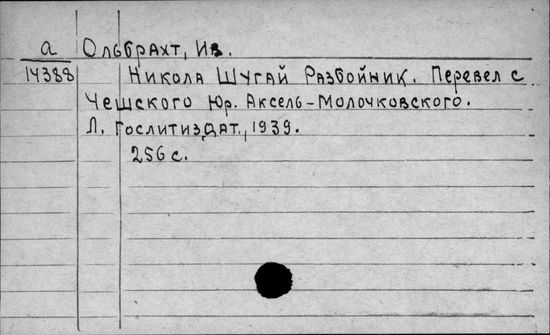 а Ольбрахт, Ив.
14388 Никола Шугай Разбойник. Перевел с
Чешского Юр. Аксель-Молочковского.
Л. Гослитиздат, 1939.
256 с.